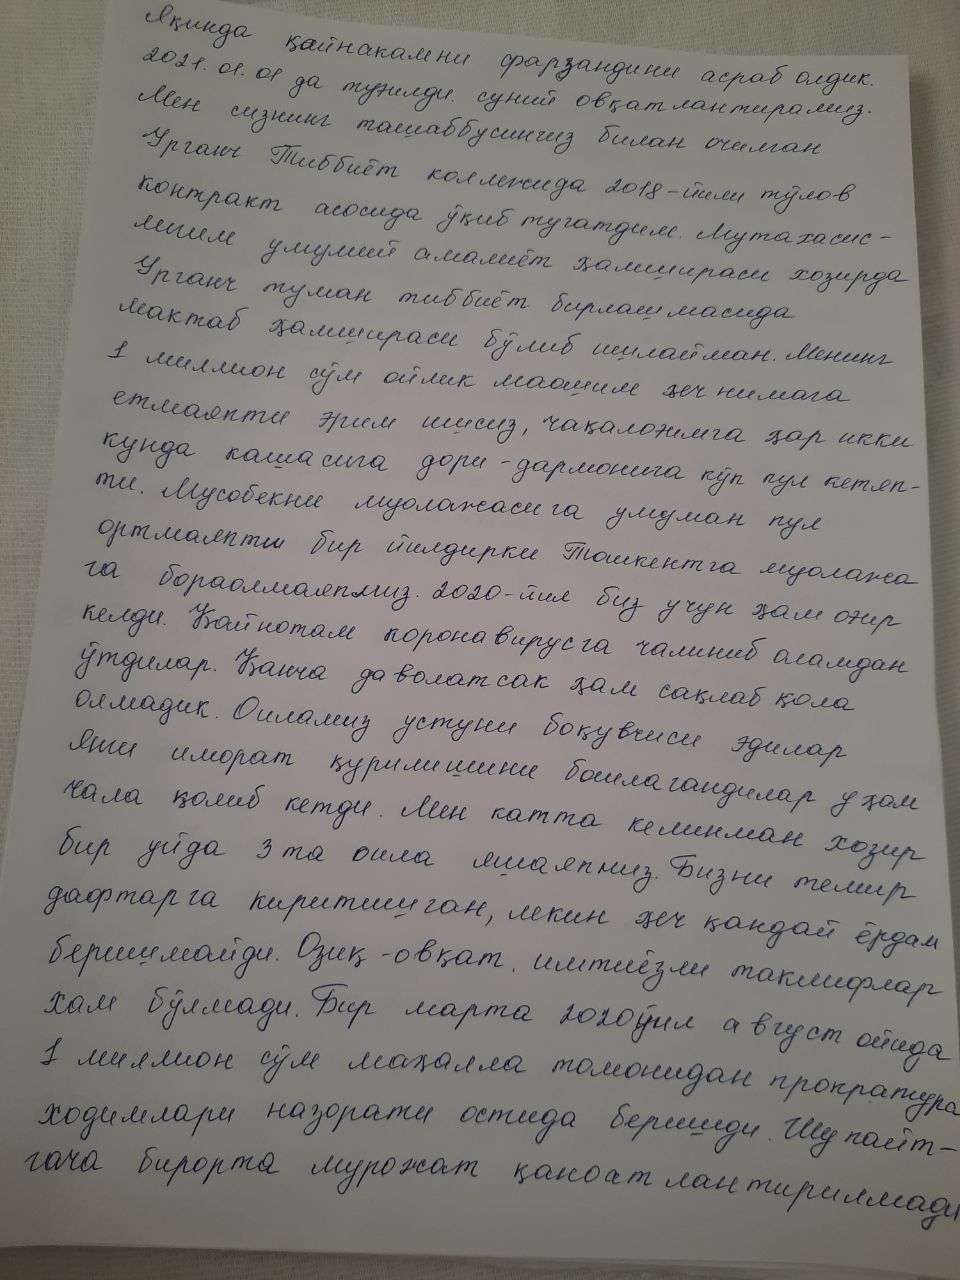 Яқинда қайнакамни фарзандини асраб олдик.
2021.01.01 да туғилди. суний овқатлантирамиз.
Мен сизнинг ташаббусингиз билан очилган
Урганч Тиббиёт коллежида 2018-йили тўлов
контракт асосида ўқиб тугатдим. Мутахасис-
лигим умумий амалиёт ҳамшираси хозирда
Урганч туман тиббиёт бирлашмасида
мактаб ҳамшираси бўлиб ишлайман. Менинг
1 миллион сўм ойлик маошим ҳеч нимага
етмаяпти эрим ишсиз, чақалоғимга ҳар икки
кунда кашасига дори-дармонига кўп пул кетяп-
ти. Мусобекни муолажасига умуман пул
ортмаяпти бир йилдирки Тошкентга муолажа
га бораолмаяпмиз. 2020-йил биз учун ҳам оғир
келди. Қайнотам коронавирусга чалиниб оламдан
ўтдилар. Қанча даволатсак ҳам сақлаб қола
олмадик. Оиламиз устуни боқувчиси эдилар
Янги иморат қурилишини бошлагандилар у ҳам
чала қолиб кетди. Мен катта келинман хозир
бир уйда 3 та оила яшаяпмиз. Бизни темир
дафтарга киритишган, лекин ҳеч қандай ёрдам
беришмайди. Озиқ-овқат, имтиёзли таклифлар
хам бўлмади. Бир марта 2020 йил август ойида
1 миллион сўм маҳалла томонидан прократура
ходимлари назорати остида беришди. Шу пайт-
гача бирорта мурожат қаноатлантирилмади